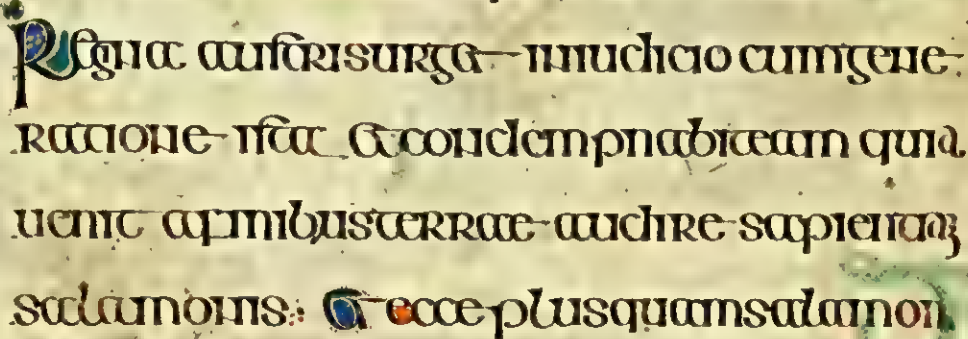 Regina austrisurget iniudicio cumgene
ratione ista etcondempnabiteam quia
uenit afinibusterrae audire sapientiam
salamonis: Et ecce plusquamsalamon